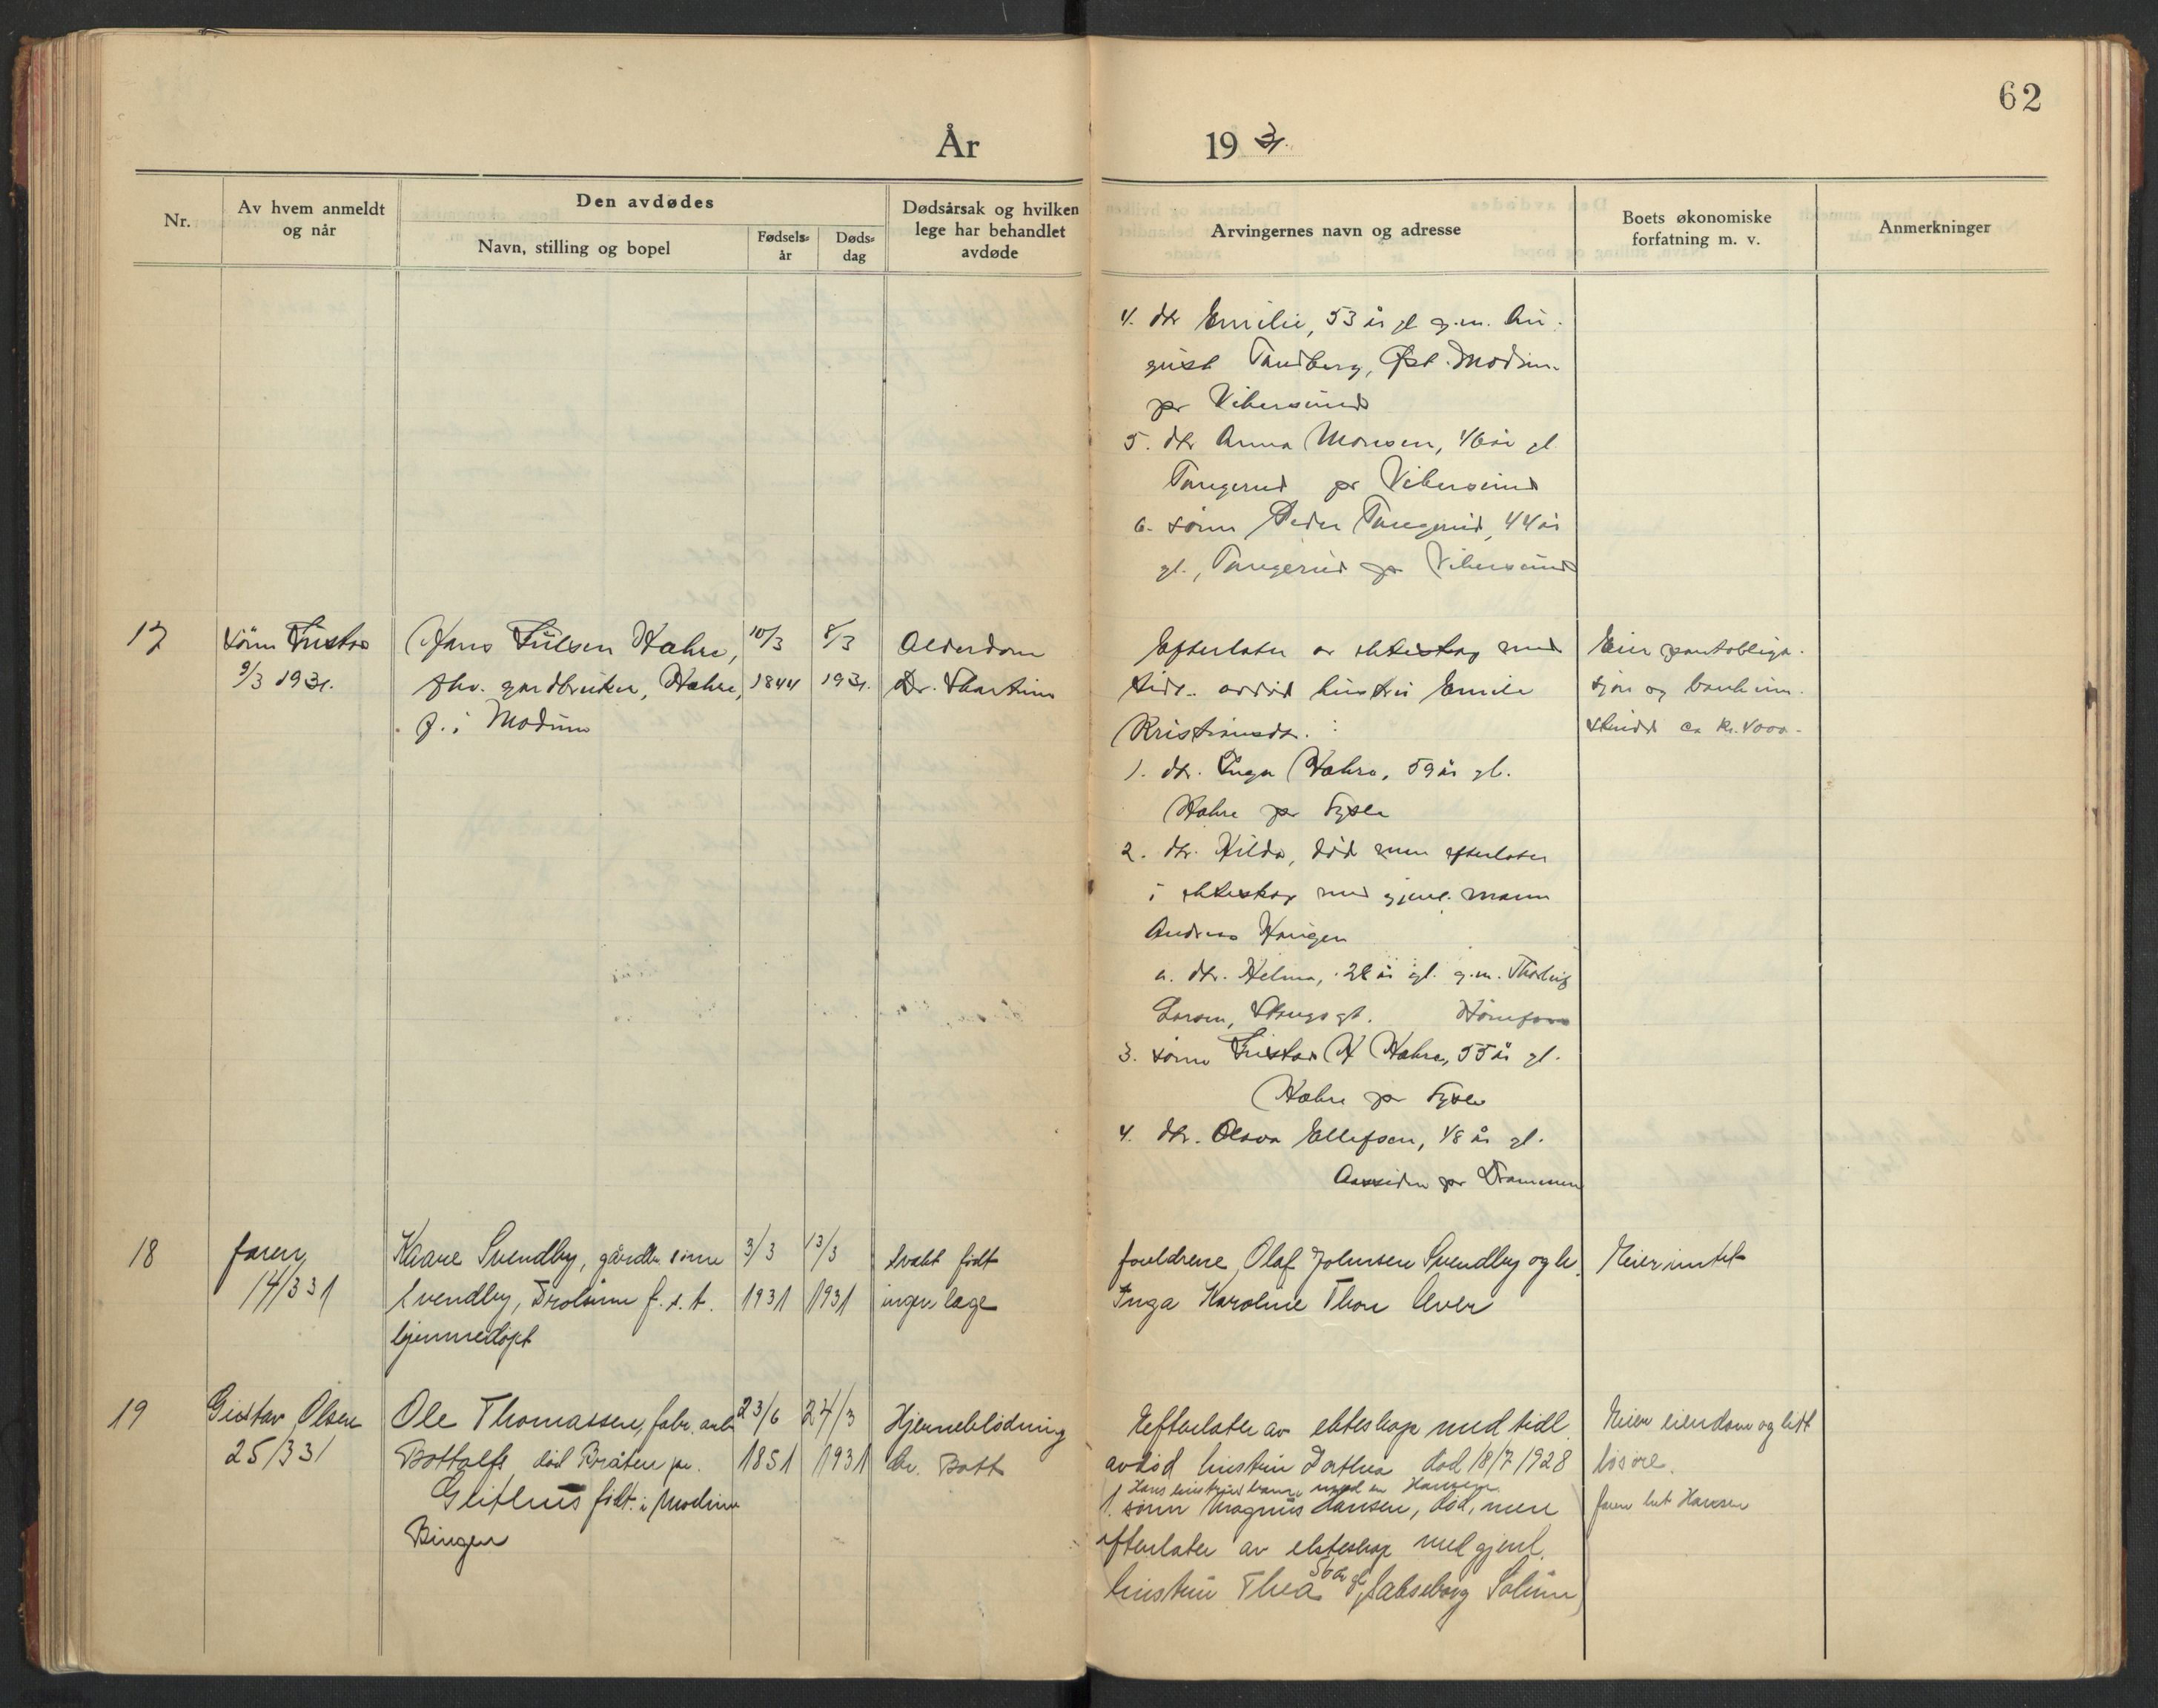 62
År 1931.
Nr.
Av hvem anmeldt
og når
Den avdødes
Navn, stilling og bopel
Fødsels-
år
Døds-
dag
Dødsårsak og hvilken
lege har behandlet
avdøde
Arvingernes navn og adresse
Boets økonomiske
forfatning m. v.
Anmerkninger
4. dtr Emilie, 53 år gl g.m. Au-
gust Tandberg, Øst-Modum
pr Vikersund
5. dtr Anna Monsen, 46 år gl.
Tangerud pr Vikersund
6. sønn Peder Tangerud, 44 år
gl., Tangerud pr Vikersund
17
sønn Gustav
9/3 1931.
Hans Hæhre,
fhv. gardbruker, Hæhre,
f. i Modum
10/3
1844
8/3
1931.
Alderdom
Dr.
Efterlater av ekteskap med
tidl. avdød hustru Emilie
Kristiansdr. :
1. dtr. Inga Hæhre, 59 år gl.
Hæhre pr Sysle
2. dtr. Hilda, død men efterlater
i ekteskap med gjenl. mann
Andreas Haugen
a. dtr. Helma, 28 år gl. g.m.
Larsen, gt. Hønefoss
3. sønn Gustav H Hæhre, 55 år gl.
Hæhre pr Sysle
4. dtr. Olava Ellefsen, 48 år gl.
Aasiden pr Drammen
Eier pantobliga-
sjon og bankinn-
skudd ca kr. 4000.-
18
faren
14/3 31
Kaare Svendby, gårdbr. sønn
Svendby, Drolsum f. s. t.
hjemmedøpt
3/3
1931
13/3
1931
svakt født
ingen læge
foreldrene, Olaf Johnsen Svendby og h.
Inga Karoline Thon lever
Eier intet
19
Gustav Olsen
25/3 31
Ole Thomassen, fabr. arb.
Bottolfs død Bråten pr.
Glithus født i Modum
Bingen
23/6
1851
24/3
1931
Hjerneblødning
dr. Bott
Efterlater av ekteskap med tidl.
avdød hustru Dorthea død 18/7 1928
Hans hustrus barn med en Hansen
1. sønn Magnus Hansen, død, men
efterlater av ekteskap med gjenl.
hustru Thea 56 år gl, Jakseborg Solum
Eier eiendom og litt
løsøre.
faren het Hansen